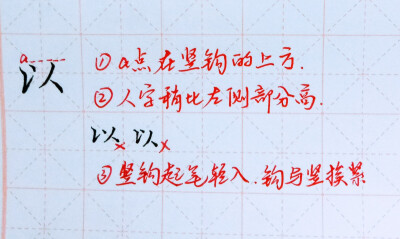 a
以 ①a点在竖钩的上方.
②人字稍比左侧部分高.
以× 以×
③竖钩起笔轻入.钩与竖挨紧